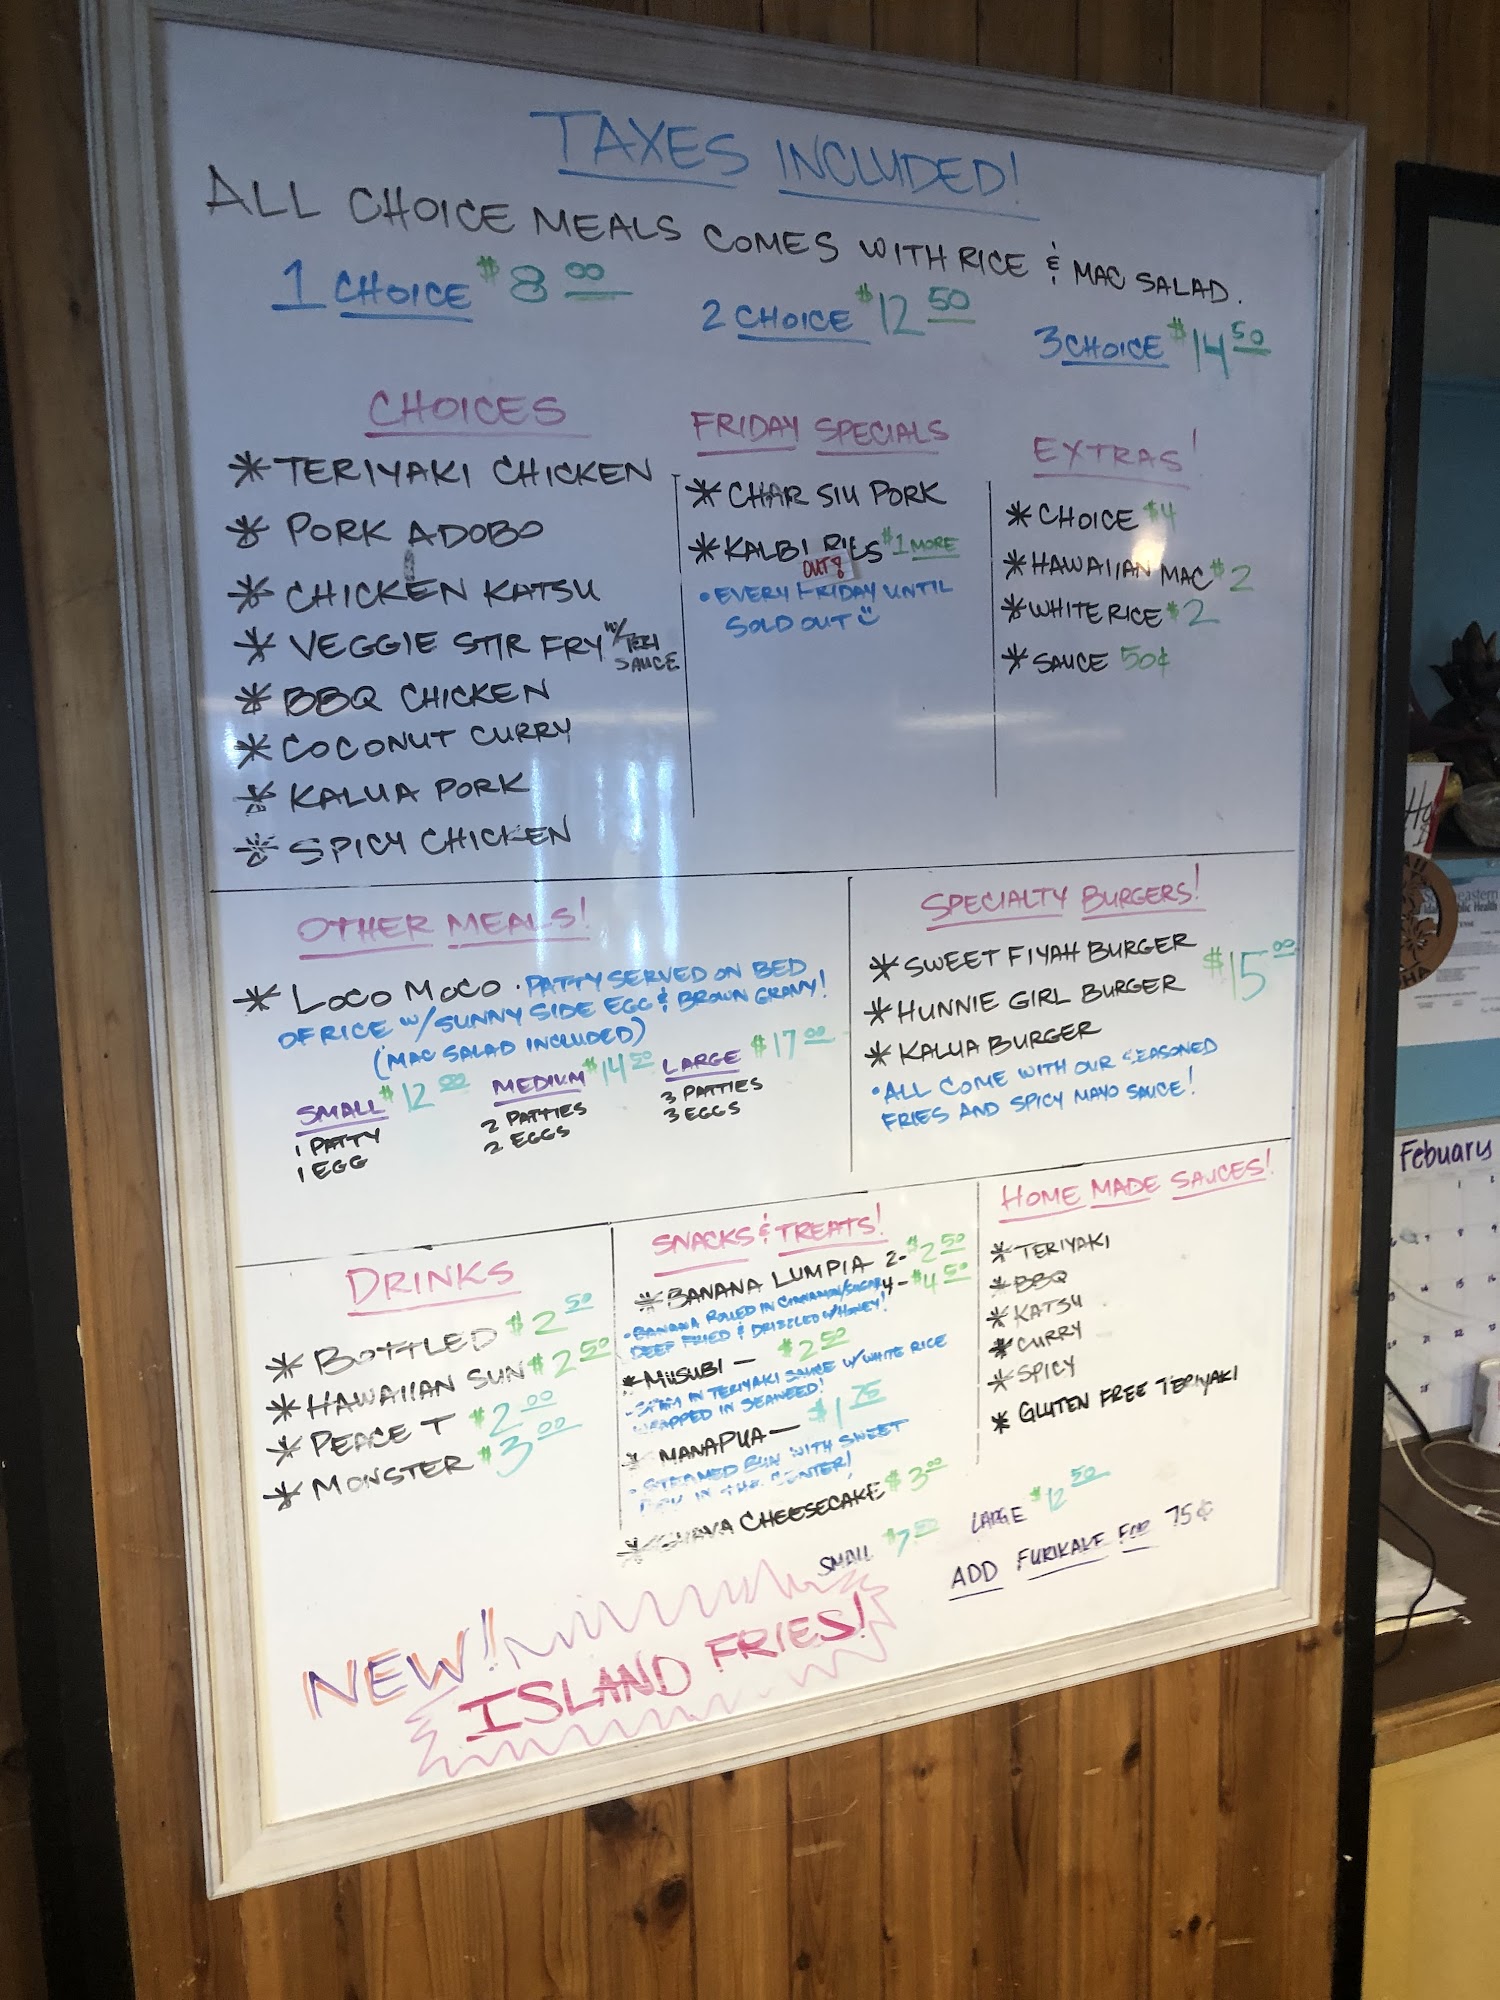 TAXES INCLUDED!
ALL CHOICE MEALS COMES WITH RICE & MAC SALAD.
1 CHOICE $8.00
2 CHOICE $12.50
3 CHOICE $14.50
CHOICES
* TERIYAKI CHICKEN
* PORK ADOBO
* CHICKEN KATSU
* VEGGIE STIR FRY W/ TERI
SAUCE
* BBQ CHICKEN
* COCONUT CURRY
* KALUA PORK
* SPICY CHICKEN
FRIDAY SPECIALS
* CHAR SIU PORK
* KALBI RIBS $1 MORE
OUT
• EVERY FRIDAY UNTIL
SOLD OUT
EXTRAS!
* CHOICE $4
* HAWAIIAN MAC $2
* WHITE RICE $2
* SAUCE 50¢
OTHER MEALS!
* LOCO MOCO • PATTY SERVED ON BED
OF RICE W/ SUNNY SIDE EGG & BROWN GRAVY!
(MAC SALAD INCLUDED)
SMALL $12.00
1 PATTY
1 EGG
MEDIUM $14.50
2 PATTIES
2 EGGS
LARGE $17.00
3 PATTIES
3 EGGS
SPECIALTY BURGERS!
* SWEET FIYAH BURGER
* HUNNIE GIRL BURGER $15.00
* KALUA BURGER
• ALL COME WITH OUR SEASONED
FRIES AND SPICY MAYO SAUCE!
DRINKS
* BOTTLED $2.50
* HAWAIIAN SUN $2.50
* PEACE T $2.00
* MONSTER $3.00
SNACKS & TREATS!
* BANANA LUMPIA 2- $2.50
4- $4.50
• BANANA ROLLED IN CINNAMON/SUGAR
DEEP FRIED & DRIZZLED W/ HONEY!
* MUSUBI — $2.50
• SPAM IN TERIYAKI SAUCE W/ WHITE RICE
WRAPPED IN SEAWEED!
* MANAPUA — $1.75
• STEAMED BUN WITH SWEET
PORK IN THE CENTER!
* GUAVA CHEESECAKE $3.00
HOME MADE SAUCES!
* TERIYAKI
* BBQ
* KATSU
* CURRY
* SPICY
* GLUTEN FREE TERIYAKI
NEW!!
ISLAND FRIES!
SMALL $7.50
LARGE $12.50
ADD FURIKAKE FOR 75¢
Febuary